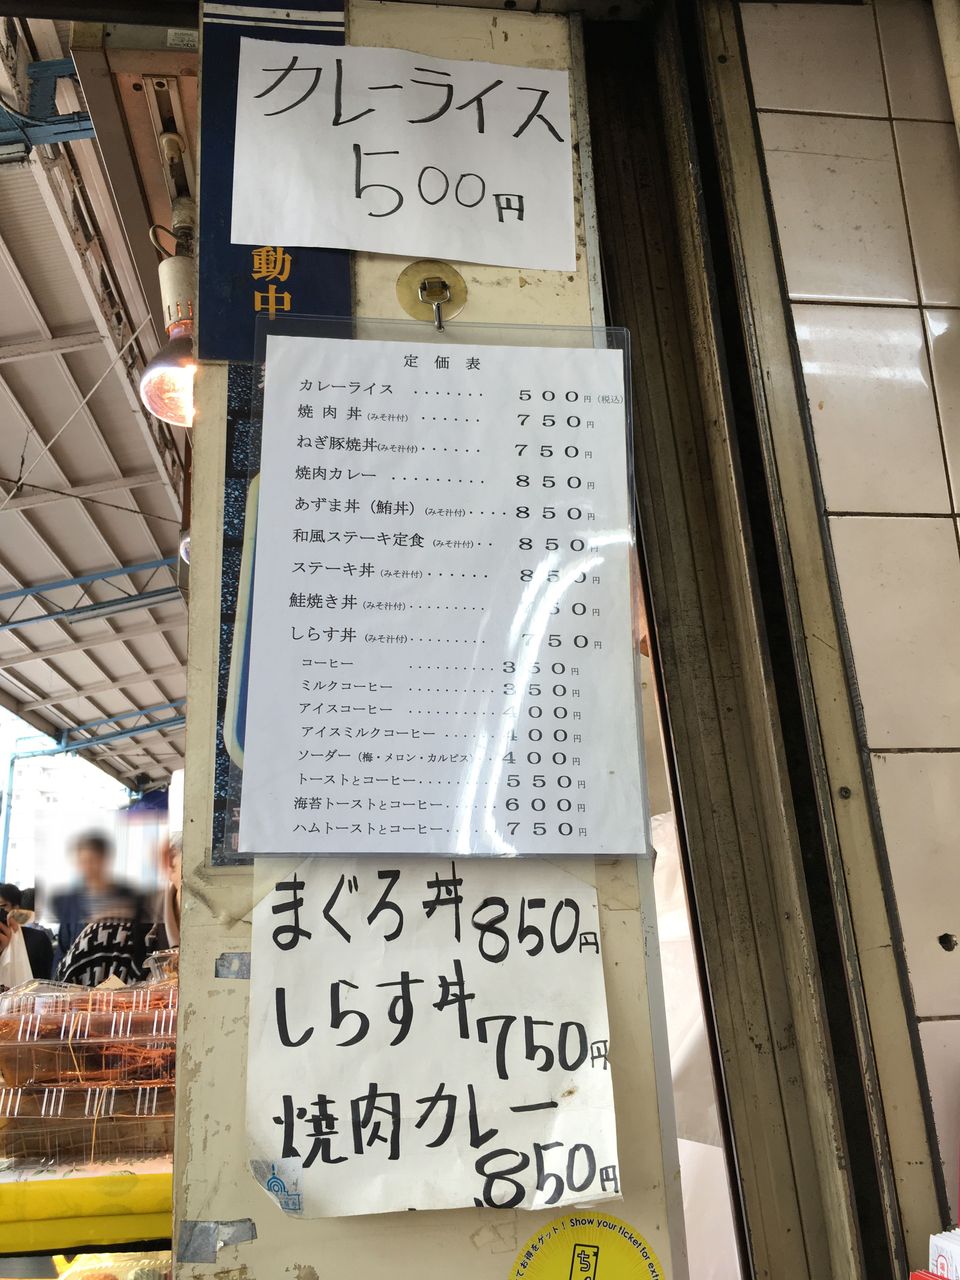 カレーライス
500円
動中
定価表
カレーライス ....... 500円(税込)
焼肉丼(みそ汁付) ...... 750円
ねぎ豚焼丼(みそ汁付)...... 750円
焼肉カレー ......... 850円
あずま丼(鮪丼)(みそ汁付)....850円
和風ステーキ定食(みそ汁付).. 850円
ステーキ丼(みそ汁付)...... 850円
鮭焼き丼(みそ汁付)......... 50円
しらす丼(みそ汁付)......... 750円
コーヒー .........350円
ミルクコーヒー .........350円
アイスコーヒー .........400円
アイスミルクコーヒー ......400円
ソーダー(梅・メロン・カルピス)..400円
トーストとコーヒー........550円
海苔トーストとコーヒー.....600円
ハムトーストとコーヒー.....750円
まぐろ丼850円
しらす丼750円
焼肉カレー
850円
てお得をゲット! Show your ticket for ext
ち